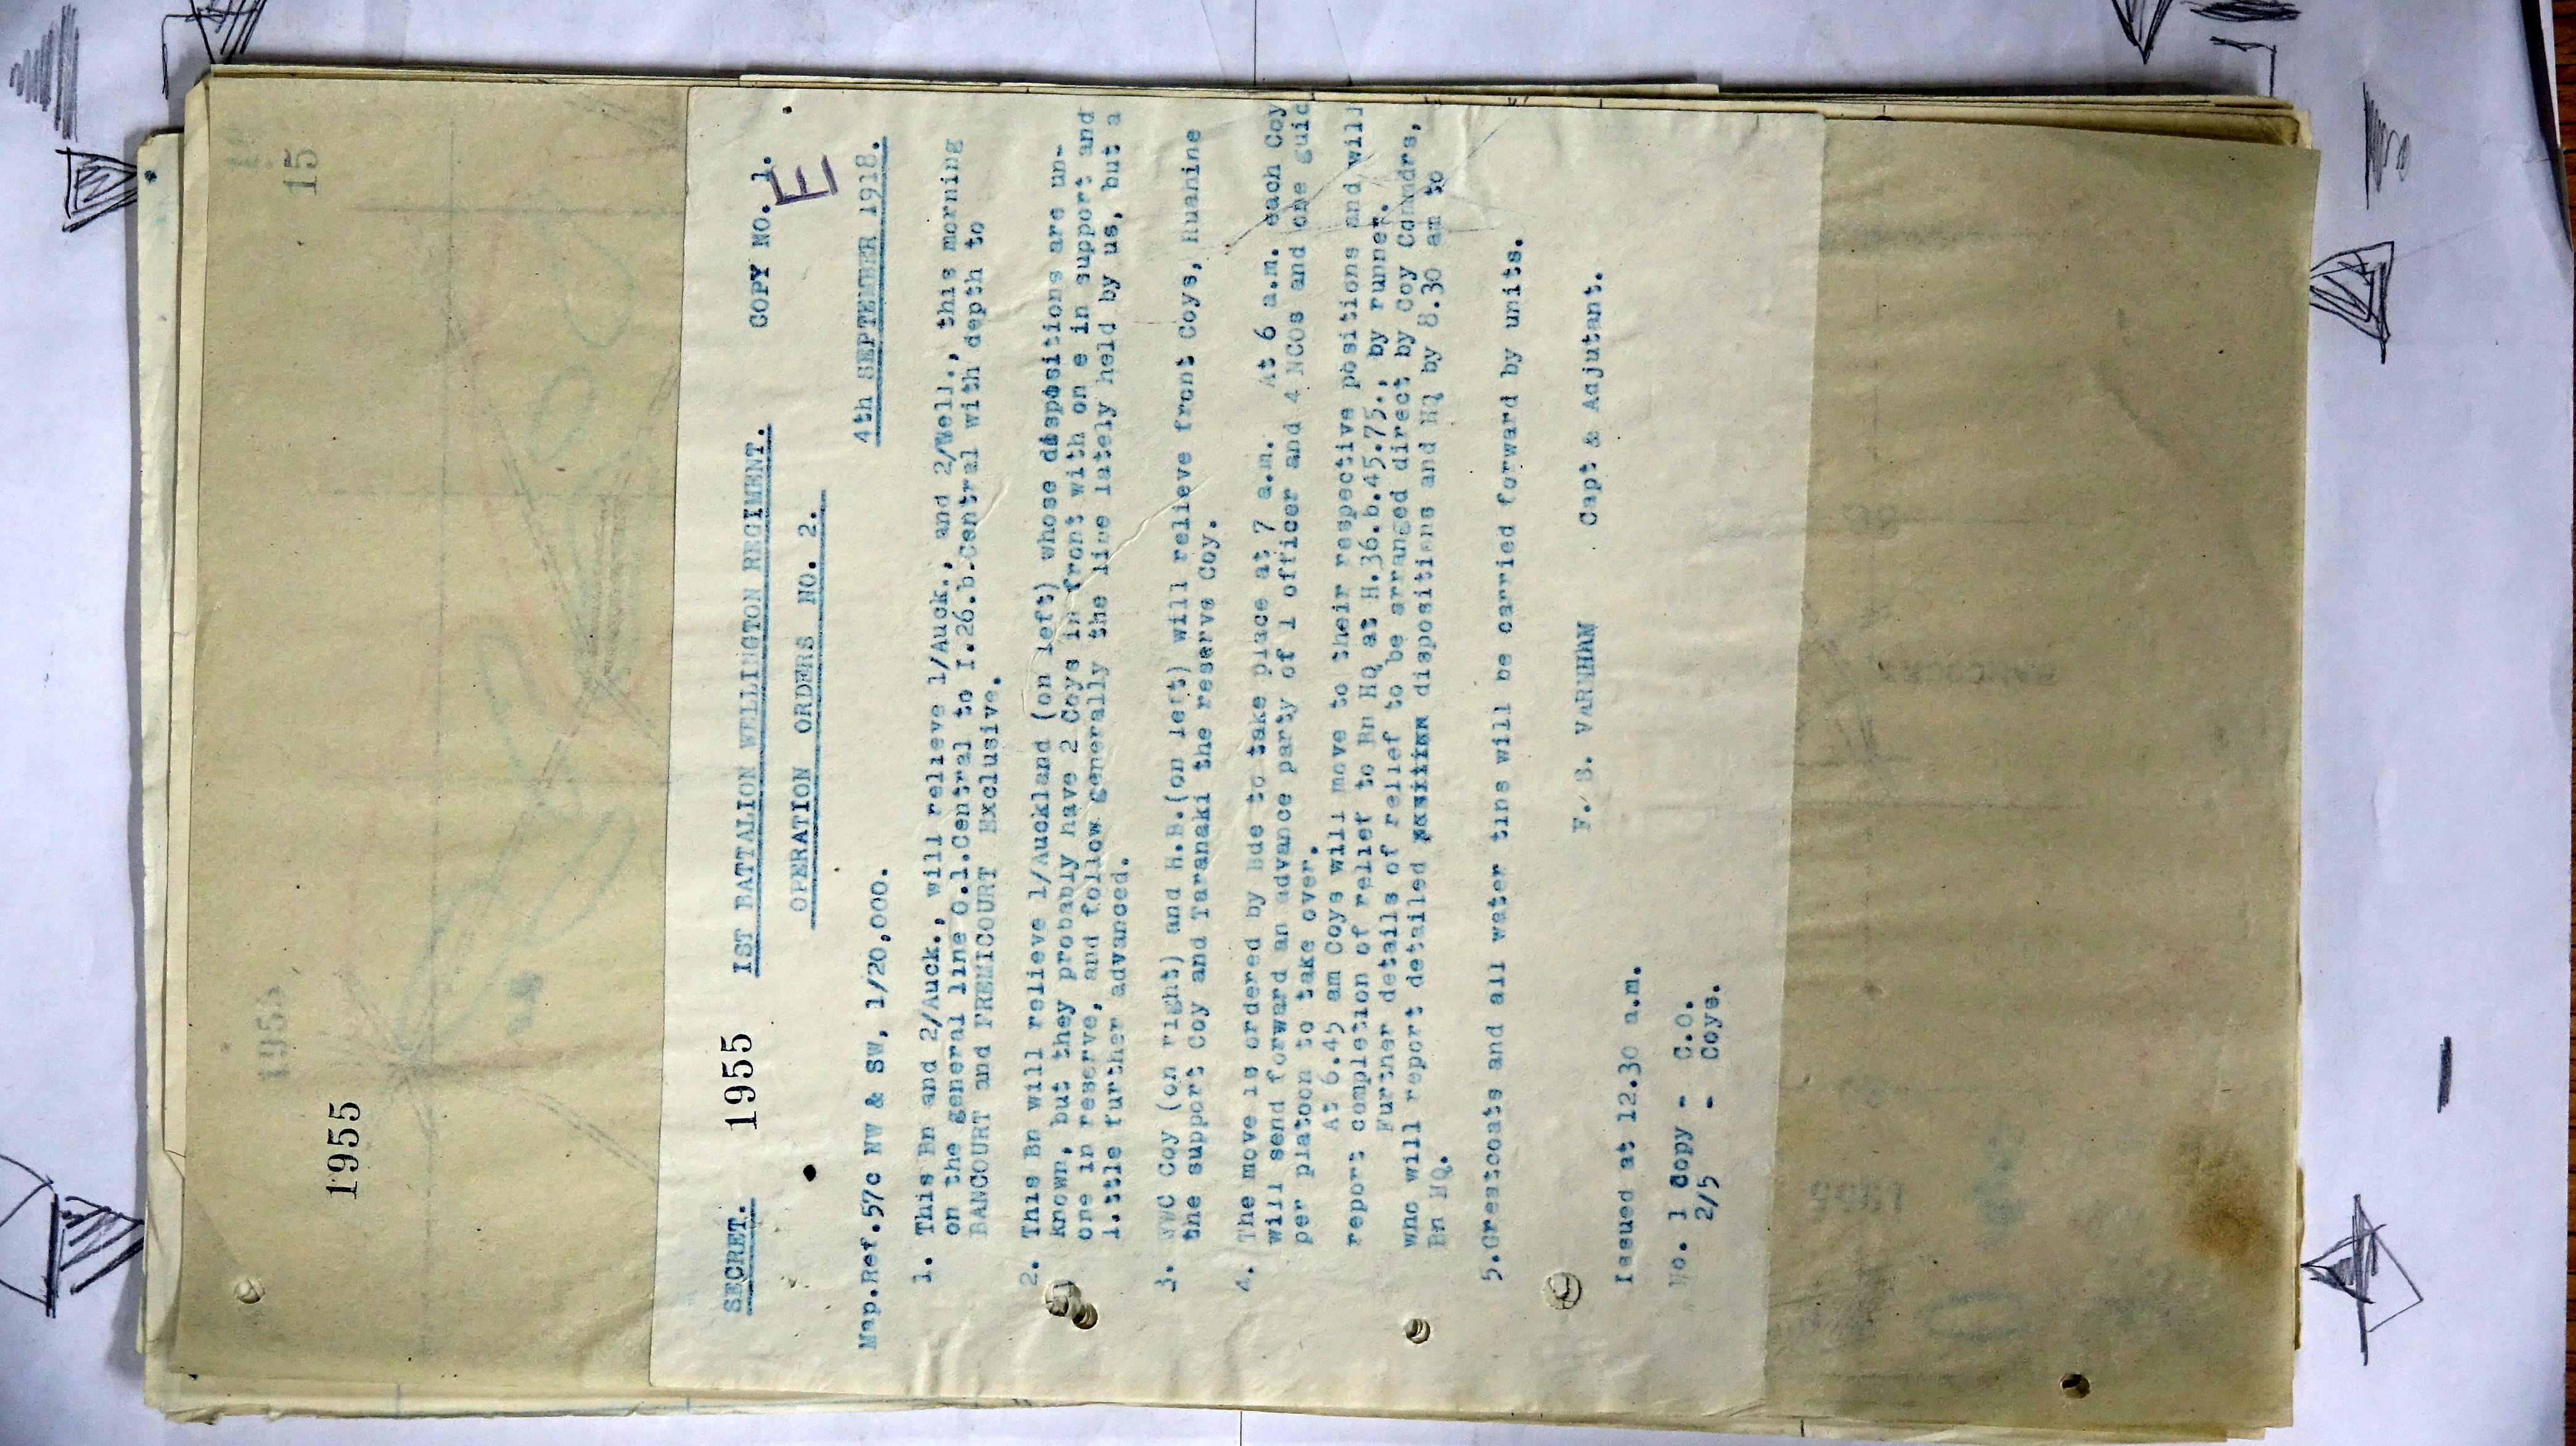 15
1955
SECRET. 1955 IST BATTALION WELLINGTON REGIMENT. COPY NO. 1.
E
OPERATION ORDERS NO. 2.
4th SEPTEMBER 1918.
Map.Ref.57c NW & SW, 1/20,000.
1. This Bn and 2/Auck., will relieve 1/Auck., and 2/Well., this morning
on the general line O.1.Central to I.26.b.Central with depth to
BANCOURT and FREMICOURT Exclusive.
2. This Bn will relieve 1/Auckland (on left) whose dispositions are un-
known, but they probably have 2 Coys in front with on e in support and
one in reserve, and follow generally the line lately held by us, but a
little further advanced.
3. WWC Coy (on right) and H.B.(on left) will relieve front Coys, Ruahine
the support Coy and Taranaki the reserve Coy.
4. The move is ordered by Bde to take place at 7 a.m. At 6 a.m. each Coy
will send forward an advance party of 1 officer and 4 NCOs and one guid
per platoon to take over.
At 6.45 am Coys will move to their respective positions and will
report completion of relief to Bn HQ at H.36.b.45.75., by runner.
Further details of relief to be arranged direct by Coy Comndrs,
who will report detailed dispositions and HQ by 8.30 am to
Bn HQ.
5.Greatcoats and all water tins will be carried forward by units.
F. S. VARNHAM Capt & Adjutant.
Issued at 12.30 a.m.
No. 1 Copy - C.O.
2/5 - Coys.